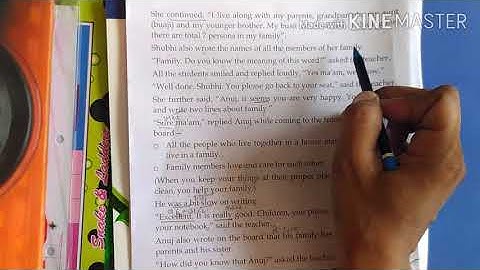 She continued, "I live along with my parents, grandparents, aunt
(buaji) and my younger brother. My buaji
there are total 7 persons in my family".
Made with KINEMASTER
Shubhi also wrote the names of all the members of her family.
"Family. Do you know the meaning of this word?" asked the teacher.
All the students smiled and replied loudly, "Yes ma'am, we know."
"Well done, Shubhi. You please go back to your seat," said the teacher.
She further said, "Anuj, it seems you are very happy.
and write two lines about family."
"Sure ma'am," replied Anuj while coming to the
board—
All the people who live together in a house
live in a family.
Family members love and care for each other.
(When you keep your things at their proper place
clean, you help your family.)
He was a bit slow on writing
"Excellent. It is really good. Children, you please
your notebook," said the teacher.
Anuj also wrote on the board that his family has
parents and his sister
"How did you know that Anuj?" asked the teacher.
Snake & Ladder